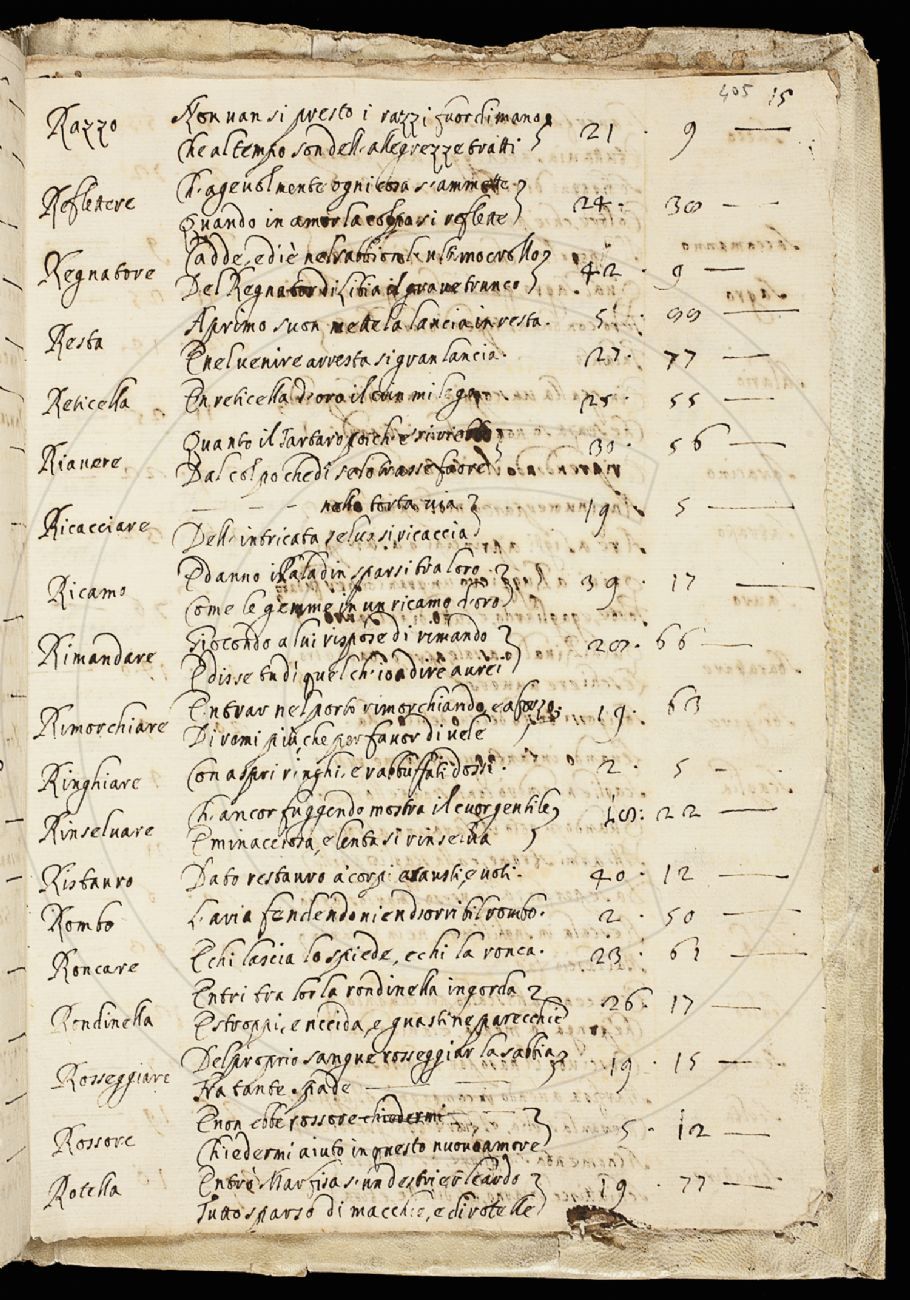 405 15
Razzo Non van si presto i razzi fuor di mano 21 · 9 —
Che al tempo son dell'allegrezze tratti
Reflettere Ch'agevolmente ogni cosa s'ammette 24 · 38 —
Quando in amor la colpa si reflette
Regnatore Cadde, e diè nel sabbion l'ultimo crollo 42 · 9 —
Del Regnator di Libia il grave trunco
Resta A primo suon mette la lancia in resta. 5 · 88 —
E nel venire arresta si gran lancia. 27 · 77 —
Reticella En reticella d'oro il crin mi lego. 25 · 55 —
Riavere Quanto il Tartaro poich'e si riebbe 30 · 56 —
Dal colpo che di se lo trasse fuore
Ricacciare — — — nella torta via 19 · 5 —
Dell'intricata selva si ricaccia
Ricamo Ed anno i Paladin sparsi tra loro 39 · 17 —
Come le gemme in un ricamo d'oro
Rimandare Giocondo a lui rispose di rimando 28 · 66 —
E disse tu dì quel ch'io a dire aurei
Rimorchiare Entrar nel porto rimorchiando, e a forza 19 · 63
Di remi più, che per favor di vele
Ringhiare Con aspri ringhi, e rabbuffati dossi. 2 · 5 —
Rinselvare Ch'ancor fuggendo mostra il cuor gentile 18: 22 —
E minacciosa, e lenta si rinselva
Ristauro Dato restauro à corpi esausti, e voti. 40 · 12 —
Rombo L'aria fendendo vien d'orribil rombo. 2 · 50 —
Roncare E chi lascia lo spiede, e chi la ronca. 23 · 61 —
Rondinella Entri tra lor la rondinella ingorda 26 · 17 —
E stroppi, e uccida, e guastine parecchie
Rosseggiare Del proprio sangue rosseggiar la sabbia 19 · 15 —
Fra tante spade — —
Rossore E non ebbe rossore chiedermi — 5 · 12 —
Chiedermi aiuto in questo nuovo amore
Rotella Entrò Marfisa s'un destrier leardo 19 · 77 —
Tutto sparso di macchie, e di rotelle